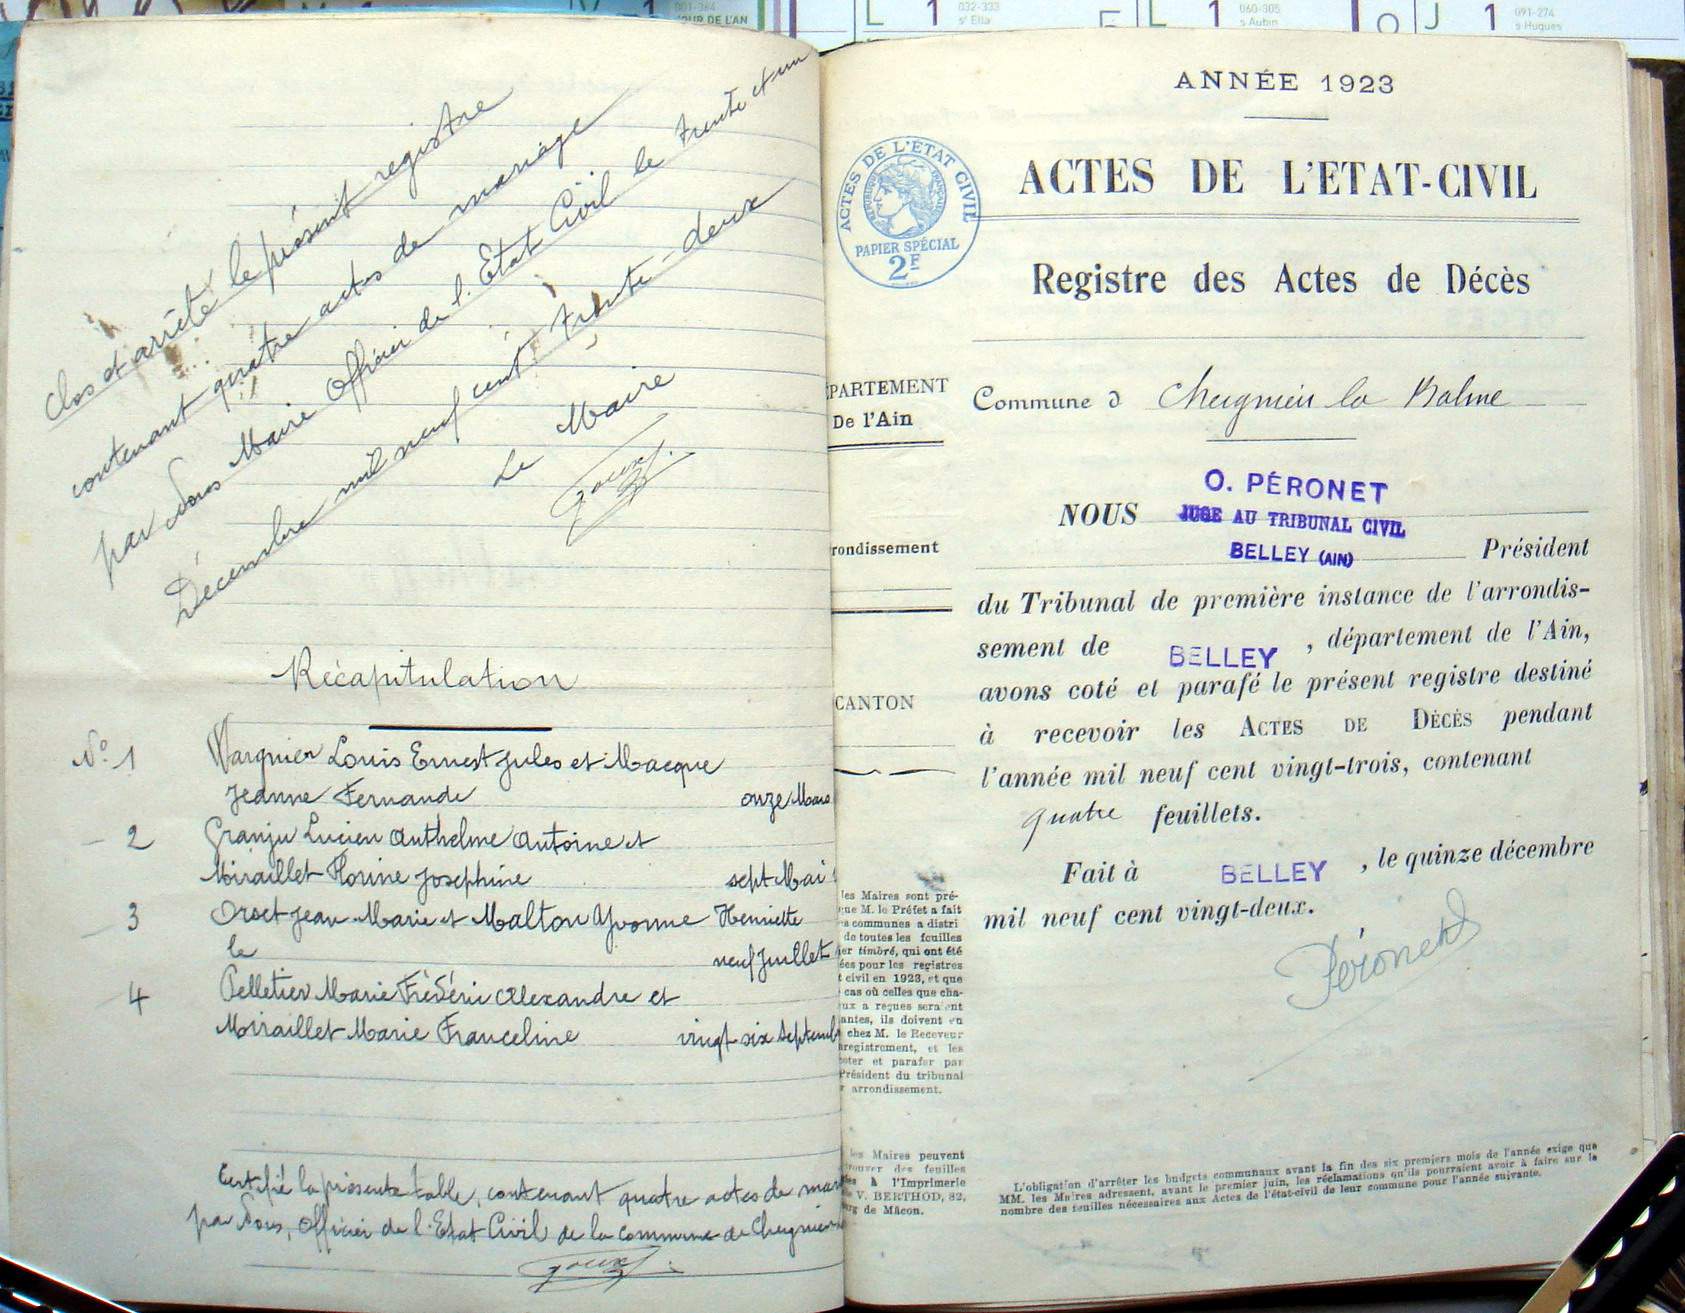 001-364
JOUR DE L'AN
L 1 032-333
s' Ella
L 1 060-305
s Aubin
J 1 091-274
s Hugues
Clos et arrêté le présent registre
contenant quatre actes de mariage
par Nous Maire Officier de l'Etat Civil le trente et un
Décembre mil neuf cent trente-deux
Le Maire
Récapitulation
N° 1 Marguier Louis Ernest Jules et Macque
Jeanne Fernande onze Mars
- 2 Granju Lucien Anthelme Antoine et
Miraillet Florine Josephine sept Mai
- 3 Orset Jean-Marie et Malton Yvonne Henriette
le neuf Juillet
- 4 Pelletier Marie Frédéric Alexandre et
Miraillet Marie Franceline vingt-six Septemb
Certifié la présente table, contenant quatre actes de mar
par Nous, Officier de l'Etat Civil de la commune de Cheignieu
ANNÉE 1923
ACTES DE L'ÉTAT CIVIL
PAPIER SPÉCIAL
2F
ACTES DE L'ETAT-CIVIL
Registre des Actes de Décès
ÉPARTEMENT
De l'Ain
Commune d Cheignieu la Balme
rondissement
CANTON
NOUS O. PÉRONET
JUGE AU TRIBUNAL CIVIL
BELLEY (AIN) Président
du Tribunal de première instance de l'arrondis-
sement de BELLEY, département de l'Ain,
avons coté et parafé le présent registre destiné
à recevoir les ACTES DE DÉCÈS pendant
l'année mil neuf cent vingt-trois, contenant
quatre feuillets.
Fait à BELLEY, le quinze décembre
mil neuf cent vingt-deux.
Péronet
les Maires sont pré-
que M. le Préfet a fait
s communes a distri
de toutes les feuilles
ier timbré, qui ont été
ées pour les registres
t civil en 1923, et que
cas où celles que cha-
ux a reçues seraient
antes, ils doivent en
chez M. le Receveur
nregistrement, et les
oter et parafer par
Président du tribunal
r arrondissement.
les Maires peuvent
trouver des feuilles
à l'Imprimerie
V. BERTHOD, 82,
rg de Mâcon.
L'obligation d'arrêter les budgets communaux avant la fin des six premiers mois de l'année exige que
MM. les Maires adressent, avant le premier juin, les réclamations qu'ils pourraient avoir à faire sur le
nombre des feuilles nécessaires aux Actes de l'état-civil de leur commune pour l'année suivante.